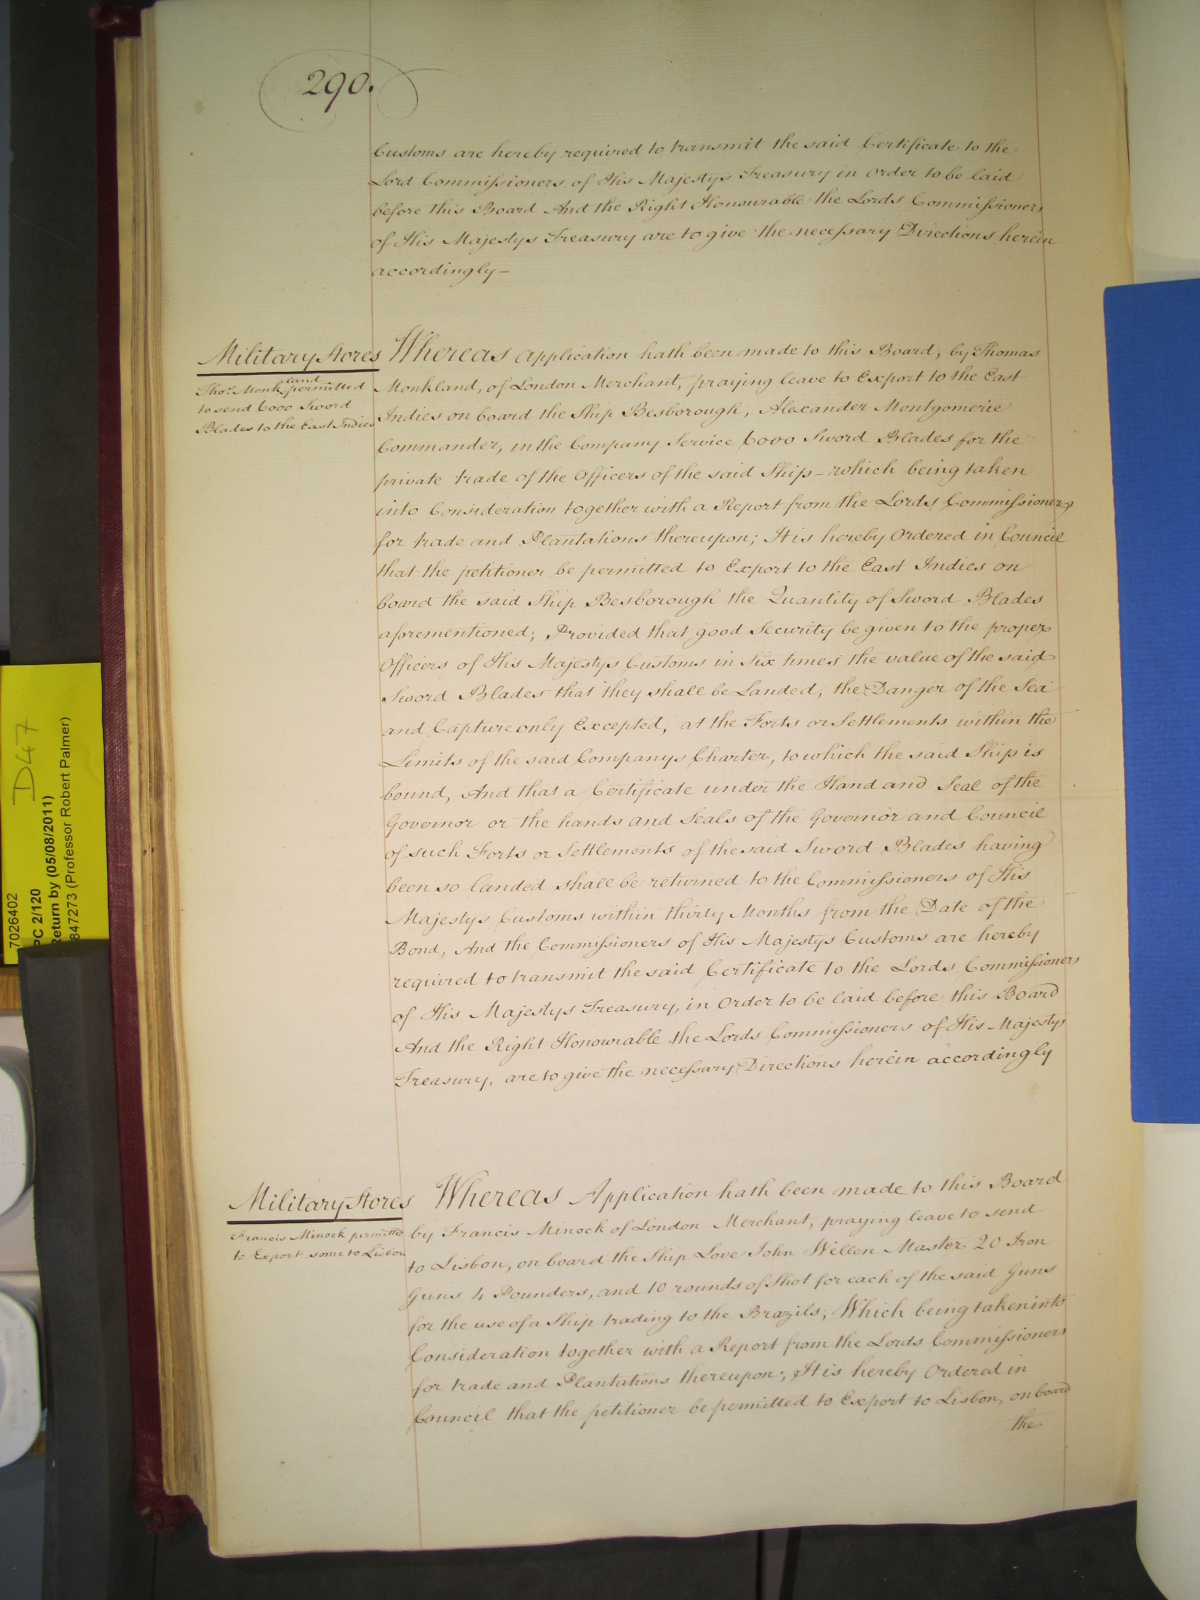 290.
Customs are hereby required to transmit the said Certificate to the
Lord Commissioners of His Majestys Treasury in order to be laid
before this Board And the Right Honourable the Lords Commissioners
of His Majestys Treasury are to give the necessary Directions herein
accordingly—
Military Stores
Thos. Monkland permitted
to send 6000 Sword
Blades to the East Indies
Whereas Application hath been made to this Board, by Thomas
Monkland, of London Merchant, praying leave to Export to the East
Indies on board the Ship Besborough, Alexander Montgomerie
Commander, in the Company Service 6000 Sword Blades for the
private trade of the Officers of the said Ship—which being taken
into Consideration together with a Report from the Lords Commissioners
for trade and Plantations thereupon; It is hereby Ordered in Council
that the petitioner be permitted to Export to the East Indies on
board the said Ship Besborough the Quantity of Sword Blades
aforementioned; Provided that good Security be given to the proper
Officers of His Majestys Customs in Six times the value of the said
Sword Blades that they shall be Landed, the Danger of the Sea
and Capture only Excepted, at the Forts or Settlements within the
Limits of the said Companys Charter, to which the said Ship is
bound, And that a Certificate under the Hand and Seal of the
Governor or the hands and Seals of the Governor and Council
of such Forts or Settlements of the said Sword Blades having
been so landed shall be returned to the Commissioners of His
Majestys Customs within thirty Months from the Date of the
Bond, And the Commissioners of His Majestys Customs are hereby
required to transmit the said Certificate to the Lords Commissioners
of His Majestys Treasury, in Order to be laid before this Board
And the Right Honourable the Lords Commissioners of His Majestys
Treasury, are to give the necessary Directions herein accordingly
Military Stores
Francis Minock permitted
to Export some to Lisbon
Whereas Application hath been made to this Board
by Francis Minock of London Merchant, praying leave to send
to Lisbon, on board the Ship Love John Wellen Master 20 Iron
Guns 4 Pounders, and 10 rounds of Shot for each of the said Guns
for the use of a Ship trading to the Brazils; Which being taken into
Consideration together with a Report from the Lords Commissioners
for trade and Plantations thereupon; It is hereby Ordered in
Council that the petitioner be permitted to Export to Lisbon, on board
the
D47
7026402
PC 2/120
Return by (05/08/2011)
847273 (Professor Robert Palmer)